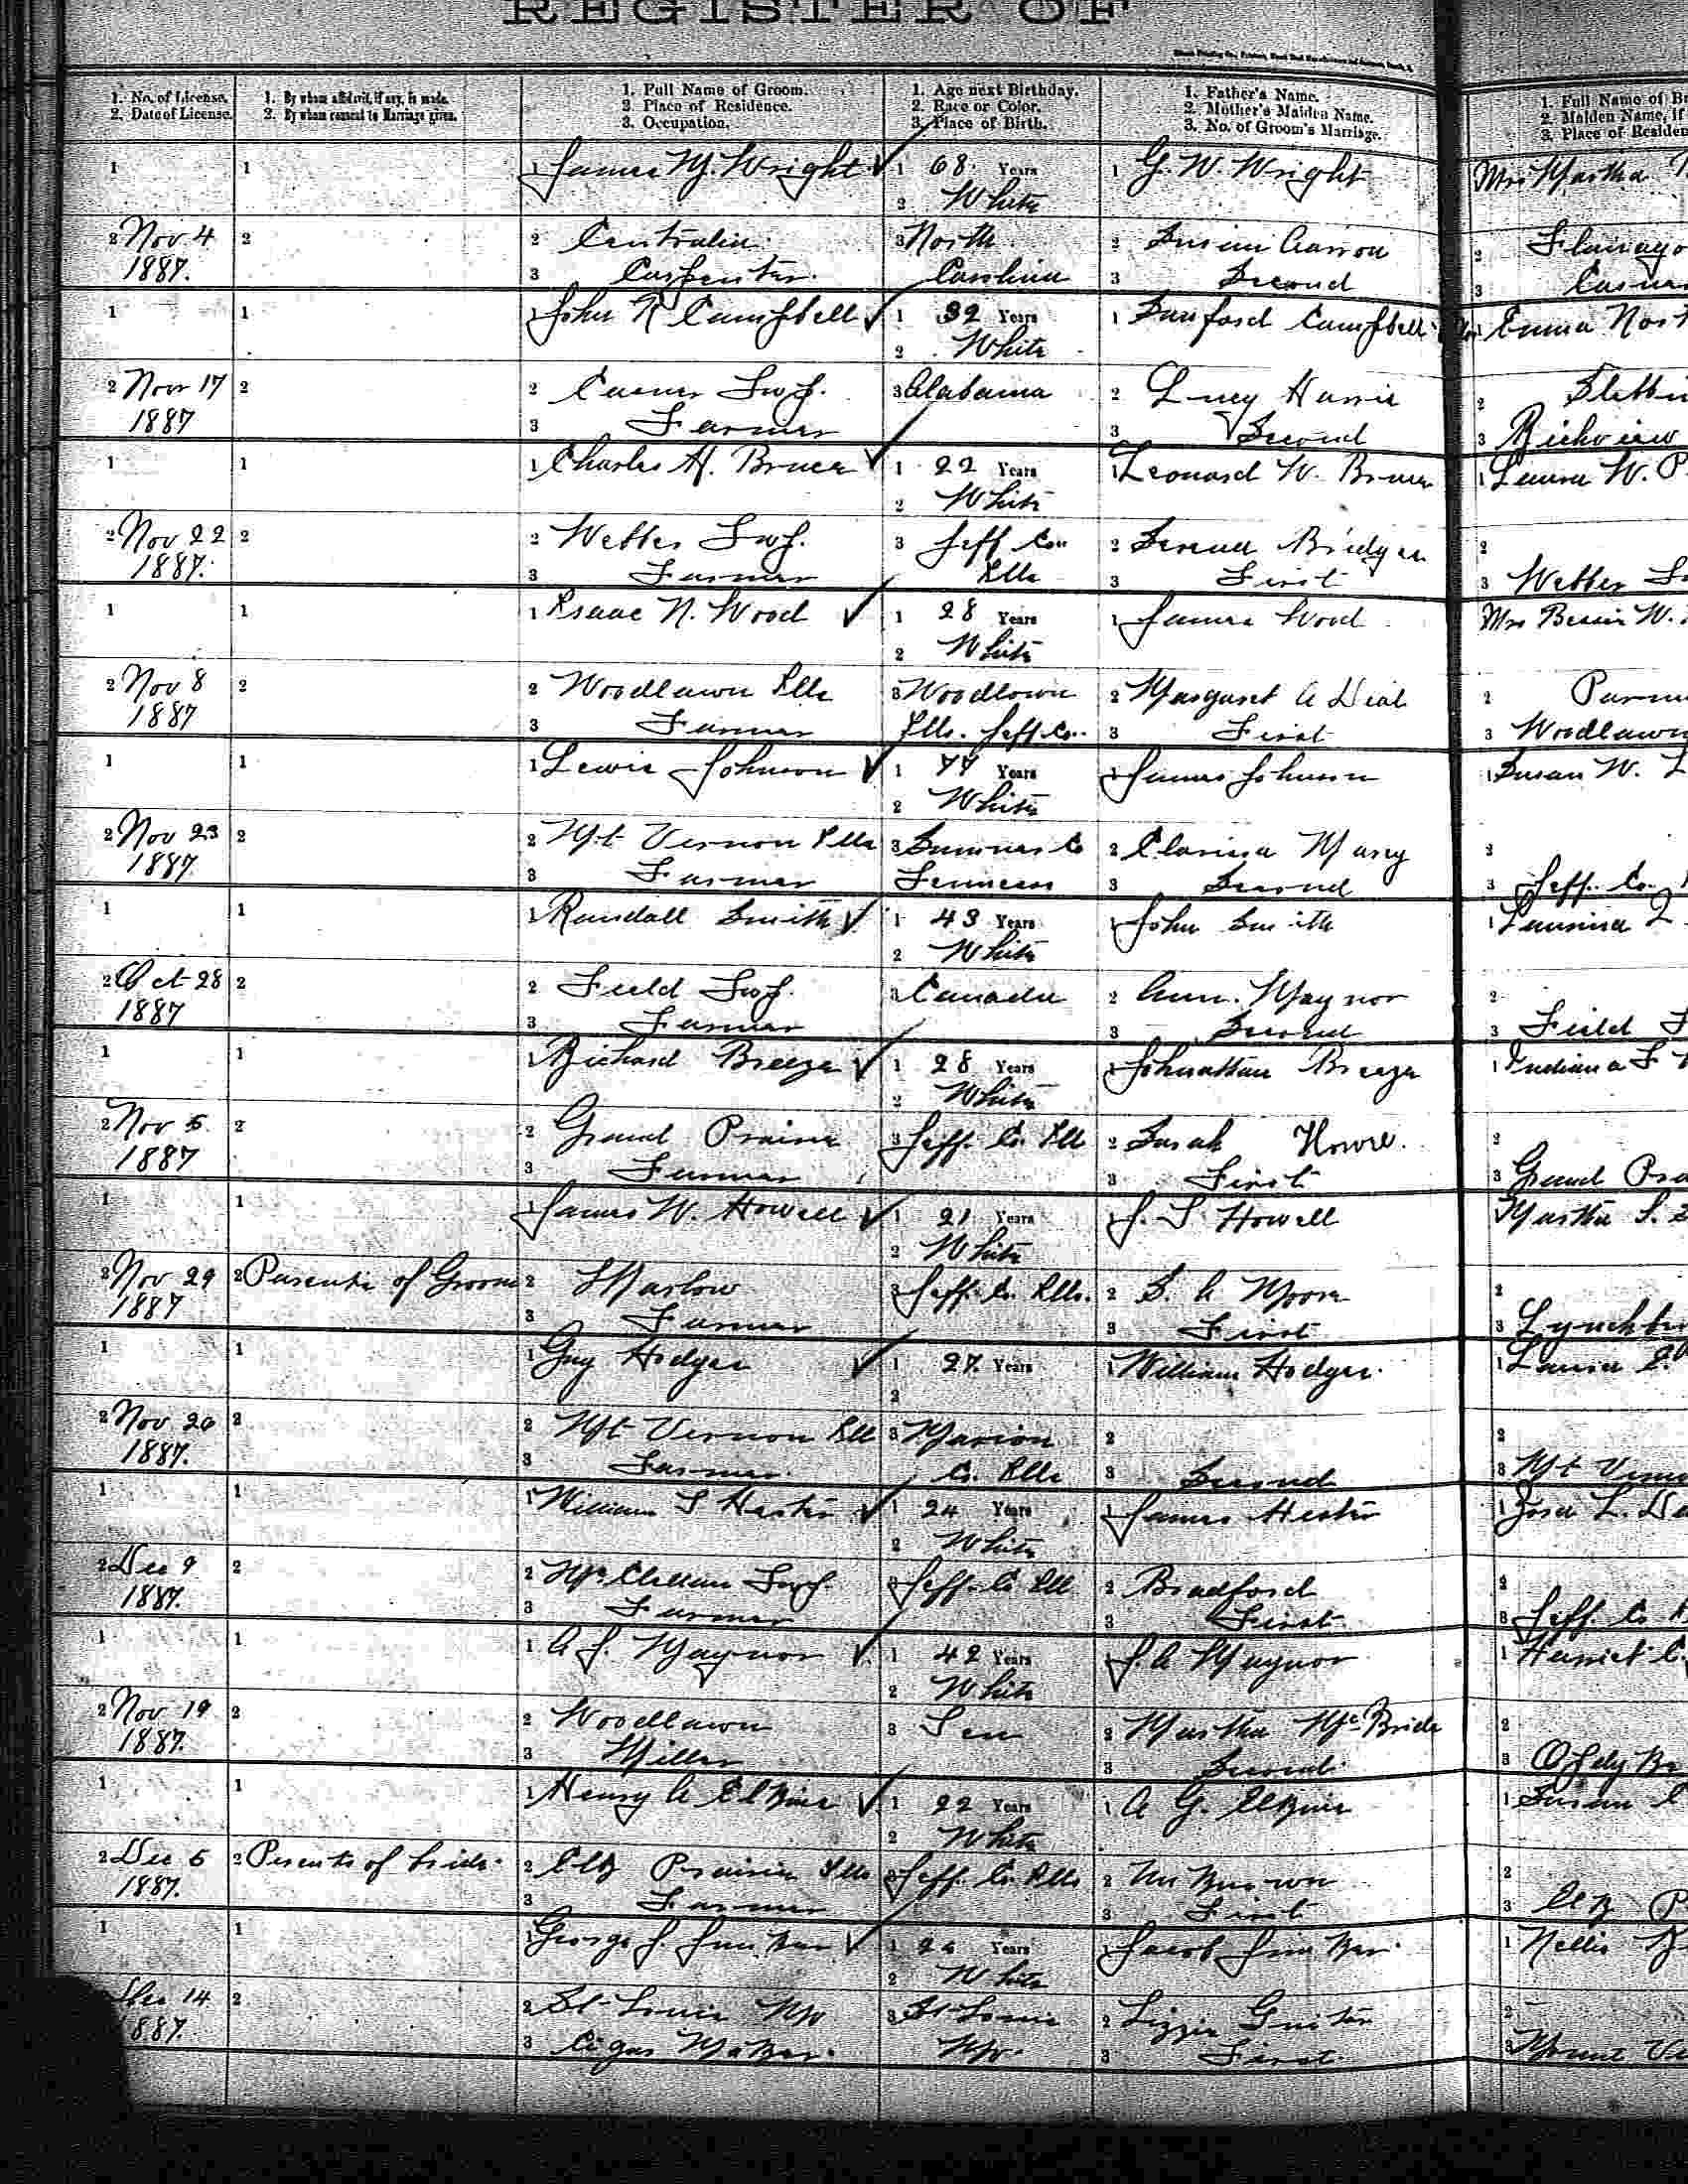 REGISTER OF
1. No. of License.
2. Date of License.
1. By whom affidavit, if any, is made.
2. By whom consent to Marriage given.
1. Full Name of Groom.
2. Place of Residence.
3. Occupation.
1. Age next Birthday.
2. Race or Color.
3. Place of Birth.
1. Father's Name.
2. Mother's Maiden Name.
3. No. of Groom's Marriage.
1. Full Name of Br
2. Maiden Name, if
3. Place of Residen
1 1 1 James M. Wright 1 68 Years 1 G. W. Wright Mrs Martha
2 White
2 Nov 4 2 2 Centralia 3 North 2 2 Flanago
1887. 3 Carpenter. Carolina 3 Second 3
1 1 1 John R Campbell 1 32 Years 1 Sanford Campbell Emma
2 White
2 Nov 17 2 2 Casner Twp. 3 Alabama 2 Lucy Harris 2
1887 3 Farmer 3 Second 3 Richview
1 1 1 Charles H. Bruce 1 22 Years 1 Leonard W. Bruce 1 Laura W. P
2 White
2 Nov 22 2 2 Webber Twp. 3 Jeff Co. 2 Bridges 2
1887. 3 Farmer Ills 3 First 3 Webber
1 1 1 Isaac N. Wood 1 28 Years 1 James Wood Mrs Bessie W.
2 White
2 Nov 8 2 2 Woodlawn Ills 3 Woodlown 2 Margaret A Dial 2
1887 3 Farmer Ills. Jeff Co. 3 First 3 Woodlawn
1 1 1 Lewis Johnson 1 77 Years 1 James Johnson 1 Susan W.
2 White
2 Nov 23 2 2 Mt Vernon Ills 3 Sumner Co 2 Clarissa 2
1887. 3 Farmer Tennessee 3 Second 3 Jeff. Co.
1 1 1 Randall Smith 1 43 Years 1 John Smith 1
2 White
2 Oct 28 2 2 Field Twp. 3 Canada 2 Ann. Maynor 2
1887 3 Farmer 3 Second 3 Field
1 1 1 Richard Breeze 1 28 Years 1 Johnathan Breeze 1 Indiana
2 White
2 Nov 5. 2 2 Grand Prairie 3 Jeff. Co. Ills 2 Sarah 2
1887 3 Farmer 3 First 3 Grand Pra
1 1 1 James W. Howell 1 21 Years 1 Howell Martha S.
2 White
2 Nov 29 2 Parents of Groom 2 Marlow 3 Jeff. Co. Ills. 2 S. A Moore 2
1887 3 Farmer 3 First 3 Lynchbu
1 1 1 Guy Hodges 1 27. Years 1 William Hodges. 1
2
2 Nov. 20 2 2 Mt Vernon Ill 3 Marion 2 2
1887. 3 Farmer. Co. Ills 3 Second 3 Mt Verno
1 1 1 William Hester 1 24 Years 1 James Hester 1
2 White
2 Dec 9 2 2 McClellan Twp. 3 Jeff. Co Ill 2 Bradford 2
1887. 3 Farmer 3 First 3 Jeff. Co
1 1 1 A J. Maynor 1 42 Years 1 J. A Maynor 1 Harriet
2 White
2 Nov 19 2 2 Woodlawn 3 Ten 2 Martha McBride 2
1887. 3 Miller 3 Second 3
1 1 1 Henry A Elkins 1 22 Years 1 A G. Elkins 1 Susan
2 White
2 Dec 5 2 Parents of bride. 2 Elk Prairie Ills 3 Jeff. Co. Ills 2 Un Known 2
1887. 3 Farmer 3 First 3 Elk P
1 1 1 George J. 1 Years 1 Jacob 1 Nellie
2 White
Dec 14 2 2 St Louis Mo 3 St Louis 2 Lizzie 2
1887. 3 Cigar Maker. Mo. 3 First 3 Mount Ve